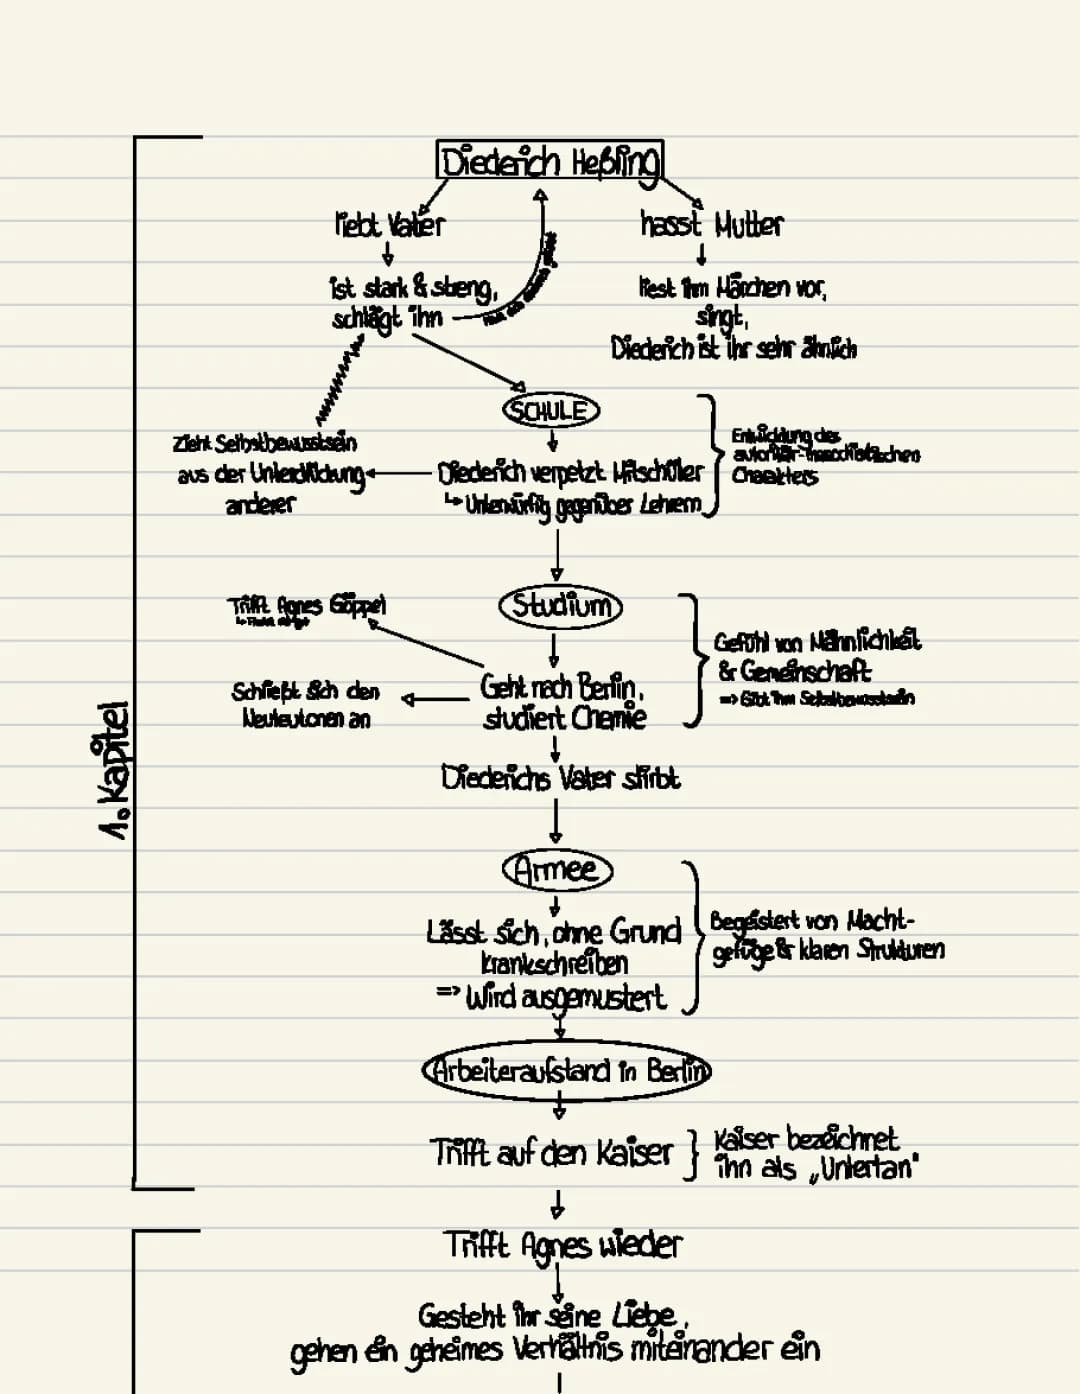 Diederich Heßling
liebt Vater
hasst Mutter
ist stark & streng,
schlägt ihn
liest ihm Märchen vor,
singt,
Diederich ist ihr sehr ähnlich
SCHULE
Zieht Selbstbewusstsein
aus der Unterdrückung
anderer
Diederich verpetzt Mitschüler
↳ Unterwürfig gegenüber Lehrern
Entwicklung des
autoritär-masochistischen
Charakters
Studium
Trifft Agnes Göppel
Geht nach Berlin,
studiert Chemie
Schließt sich den
Neuteutonen an
Gefühl von Männlichkeit
& Gemeinschaft
=> Gibt ihm Selbstbewusstsein
Diederichs Vater stirbt
Armee
Lässt sich, ohne Grund
krankschreiben
=> Wird ausgemustert
Begeistert von Macht-
gefüge & klaren Strukturen
Arbeiteraufstand in Berlin
Trifft auf den Kaiser
Kaiser bezeichnet
ihn als „Untertan"
1. Kapitel
Trifft Agnes wieder
Gesteht ihr seine Liebe,
gehen ein geheimes Verhältnis miteinander ein